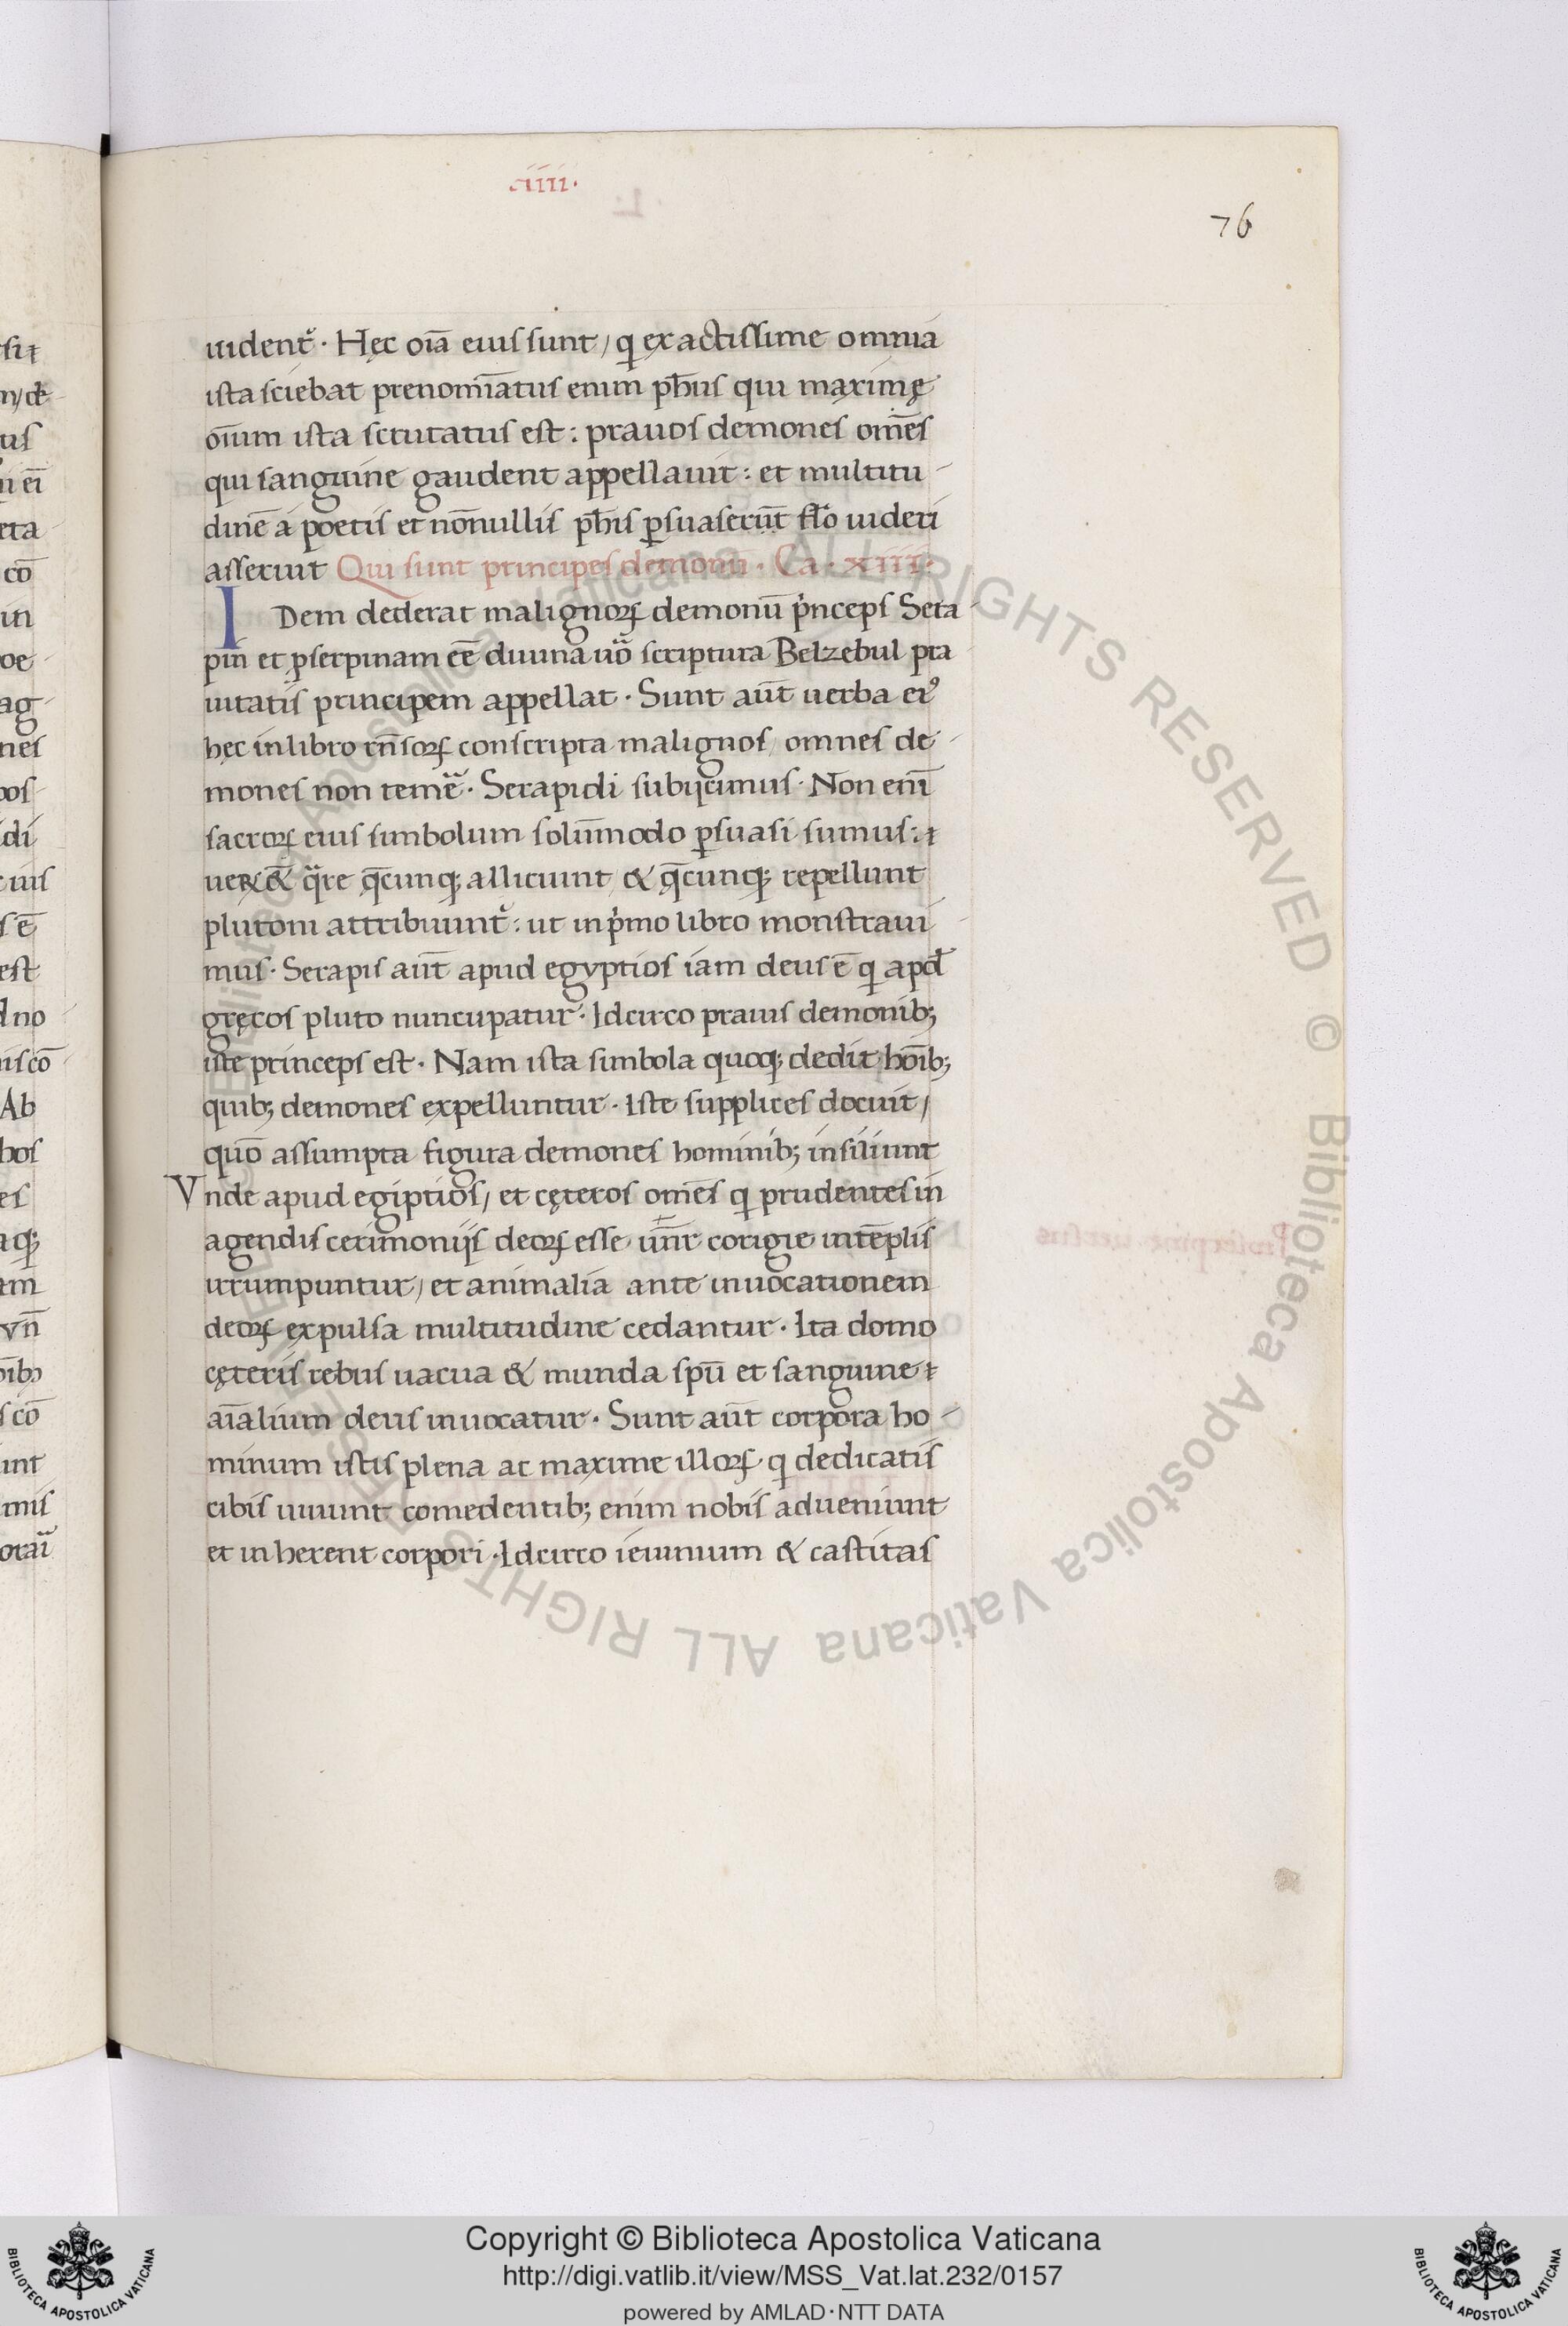 ·iiii·
76
uident᷑ · Hęc oı̄a eius sunt / q exactissime omnia
ista sciebat prenomı̄atus enim ph̄us qui maximę
oı̄um ista scrutatus est : prauos demones om̄es
qui sanguine gaudent appellauit : et multitu-
dinē a poetis et nōnullis ph̄is ꝑsuaserūt
asseruit Qui sunt principes demonū · Ca · xiii·
IDem dederat malignoꝝ demonū pͥnceps Sera-
pin et ꝓserpinam eē diuina uͦo scriptura Belzebul pra
uitatis principem appellat · Sunt aūt uerba eiꝰ
hęc in libro rn̄soꝝ conscripta malignos / omnes de-
mones non temeͣ · Serapidi subijcimus · Non enī
sacroꝝ eius simbolum solūmodo ꝑsuasi sumus : ⁊
qͣre q̄cunqꝫ alliciunt / & q̄cunqꝫ repellunt
plutoni attribuunt᷑ : ut in pͥmo libro monstraui-
mus · Serapis aūt apud egyptios iam deus ē q apd̄
gręcos pluto nuncupatur · Idcirco prauis demonibꝫ
iste princeps est · Nam ista simbola quoqꝫ dedit hoı̄bꝫ
quibꝫ demones expelluntur · Iste supplices docuit /
quō assumpta figura demones hominibꝫ insiliunt
Vnde apud egiptios / et cęteros om̄es q prudentes in
agendis cerimonijs deoꝝ esse un̄r corigie in tēplis
irrumpuntur / et animalia ante inuocationem
deoꝝ expulsa multitudine cedantur · Ita domo
cęteris rebus uacua & munda spū et sanguine ⁊
aı̄alium deus inuocatur · Sunt aūt corpora ho-
minum istis plena ac maxime illoꝝ q dedicatis
cibis uiuunt comedentibꝫ enim nobis adueniunt
et inherent corpori · Idcirco ieiunium & castitas
Copyright © Biblioteca Apostolica Vaticana
http://digi.vatlib.it/view/MSS_Vat.lat.232/0157
powered by AMLAD·NTT DATA